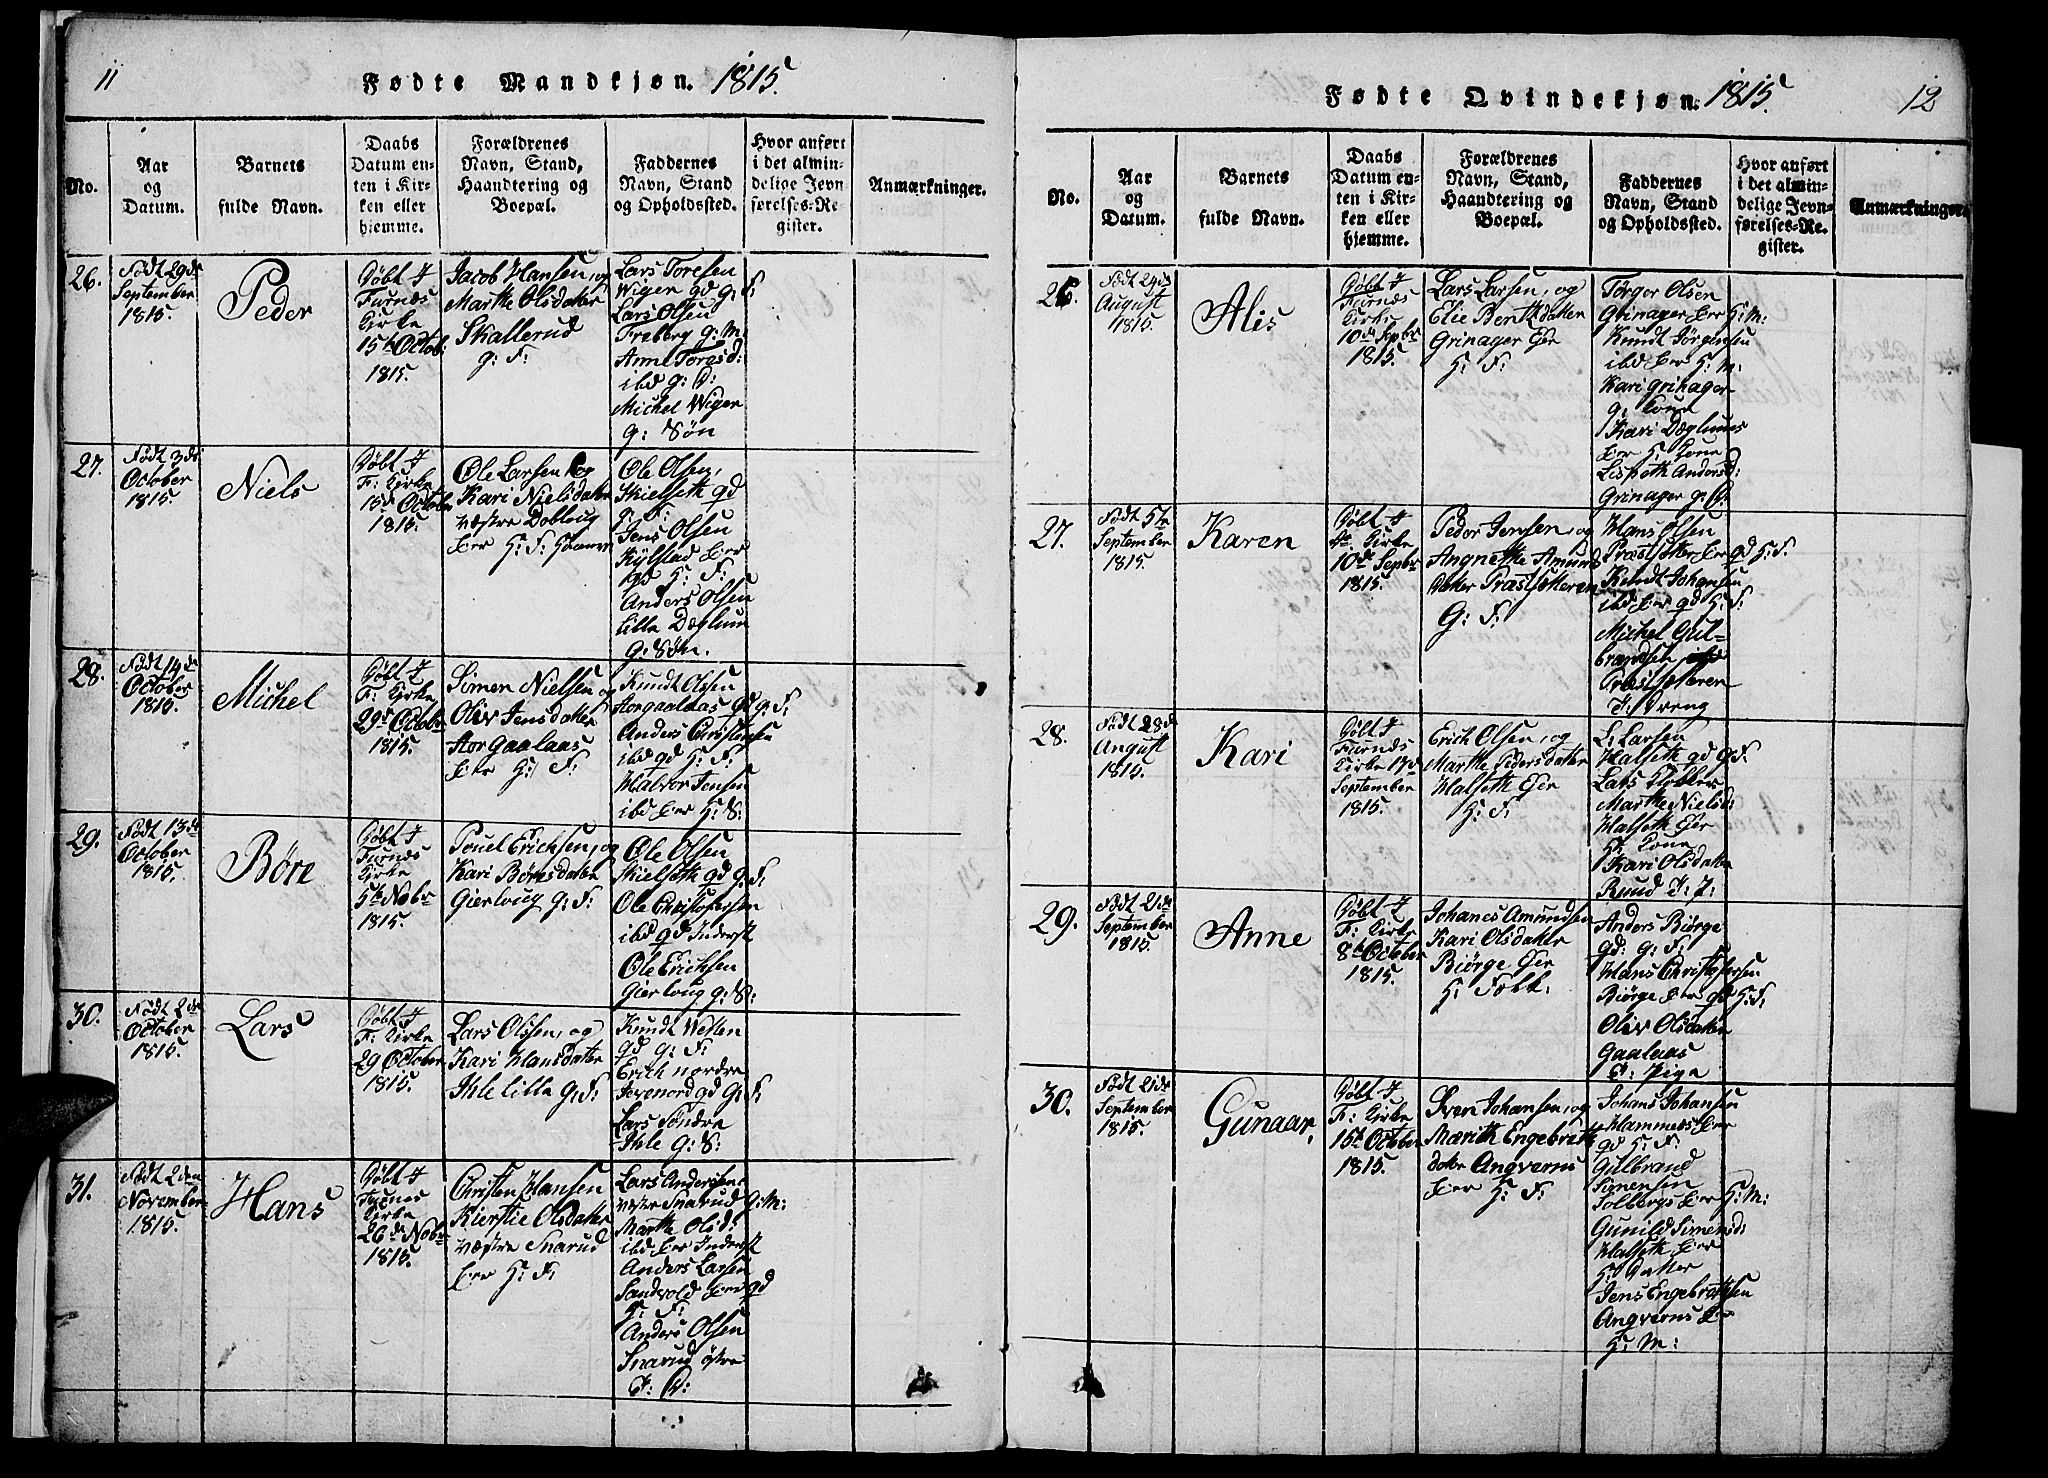 11
Fødte Mandkjøn. 1815.
No.
Aar
og
Datum.
Barnets
fulde Navn.
Daabs
Datum en-
ten i Kir-
ken eller
hjemme.
Forældrenes
Navn, Stand,
Haandtering og
Boepæl.
Faddernes
Navn, Stand
og Opholdssted.
Hvor anført
i det almin-
delige Jevn-
førelses-Re-
gister.
Anmærkninger.
26.
Født 29de
September
1815.
Peder
Døbt I
Furnæs
Kirke
15de Octob:
1815.
Jacob Hansen, og
Marthe Olsdatter
Skallerud
g: F:
Lars Toresen
Wiger gd g: F:
Lars Olsen
Freberg g: M:
Anne Toresd:
ibd g: D:
Michel Wiger
g: Søn
27.
Født 3de
October
1815.
Niels
Døbt I
F: Kirke
15de October
1815.
Ole Larsen og
Kari Nielsdatter
væstre Dobloug
Eier H: F:
Ole Olsen,
Skielseth gd
g: F:
Jens Olsen
Kylstad Eier
gd H: F:
Anders Olsen
Lille Dæglum
g: Søn.
28.
Født 14de
October
1815.
Michel
Døbt I
F: Kirke
29de Octob:
1815.
Simen Nielsen og
Oliv Jensdatter
Storgaalaas
Eier H: F:
Knudt Olsen
Storgaalaas gd g: F:
Anders Christensen
ibd gd H: F:
Halvor Jensen
ibd Eier H: S:
29.
Født 13de
October
1815.
Børe
Døbt I
Furnæs
Kirke
5te Nobr
1815.
Pouel Erichsen, og
Kari Børesdatter
Gierloug g: F:
Ole Olsen
Skielseth gd g: F:
Ole Christophersen
ibd gd Inderst
Ole Erichsen
Gierloug g: S:
30.
Født 2de
October
1815.
Lars
Døbt I
F: Kirke
29 October
1815.
Lars Olsen, og
Kari Hansdatter
Ihle lille g: F:
Knudt Westen
gd g: F:
Erich nordre
Jevenord gd G: F:
Lars Søndre
Ihle g: S:
31.
Født 2den
November
1815.
Hans
Døbt I
Furnes
Kirke
26de Nobr
1815.
Christen Hansen
Kierstie Olsdatter
væstre Snarud
Eier H: F:
Lars Andersen
vestre Snarud g: M:
Marthe Olsd:
ibd Eier Inderst
Anders Larsen
Sandvold Eier gd
H: F:
Anders Olsen
Snarud østre
I: D:
Fødte Qvindekjøn. 1815.
12
No.
Aar
og
Datum.
Barnets
fulde Navn.
Daabs
Datum en-
ten i Kir-
ken eller
hjemme.
Forældrenes
Navn, Stand,
Haandtering og
Boepæl.
Faddernes
Navn, Stand
og Opholdssted.
Hvor anført
i det almin-
delige Jevn-
førelses-Re-
gister.
Anmærkninger.
26.
Født 24de
August
1815.
Alis
Døbt I
Furnæs
Kirke
10de Sepbr
1815.
Lars Larsen, og
Elie Berthdatter
Grinager Eier
H: F:
Torger Olsen
Grinager Eier H: M:
Knudt Jørgensen
ibd Eier H: M:
Kari Grinager
g: Kone
Kari Dæglums
Eier H: Kone
Lisbeth Andersd:
Grinager g: D:
27.
Født 5te
September
1815.
Karen
Døbt I
F: Kirke
10de Sepbr
1815.
Peder Jensen, og
Angnethe Amunds
datter Præstsæteren
G: F:
Hans Olsen
Præstsæter Eier gd H: F:
Knudt Johansen
ibd Eier gd H: F:
Michel Gul-
brandsen
Præstsæteren
I: Dreng
28.
Født 28de
August
1815.
Kari
Døbt I
Furnæs
Kirke 17de
September
1815.
Erich Olsen, og
Marthe Pedersdatter
Halseth Eier
H: F:
L: Larsen
Halseth gd g: F:
Lars Stokker
Marthe Nielsd:
Halseth Eier
H: Kone
Kari Olsdatter
Ruud I: P:
29.
Født 21de
September
1815.
Anne
Døbt I
F: Kirke
8de October
1815.
Johanes Amundsen
Kari Olsdatter
Biørge Eier
H: Folk.
Anders Biørge
gd: g: F:
Hans Christophersen
Biørge Eier gd H: F:
Oliv Olsdatter
Gaalaas
T: Pige
30.
Født 21de
September
1815.
Gunaar,
Døbt I
F: Kirke
15de October
1815.
Sven Johansen, og
Marith Engebrith
datter Angverns
Eier H: F:
Johans Johansen
Hammers Eier
gd H: F:
Gulbrand
Simensen
Solbergs Eier H: M:
Gunild Simensd:
Halseth Eier
H: Datter
Jens Engebrethsen
Angverns Eier
H: M: